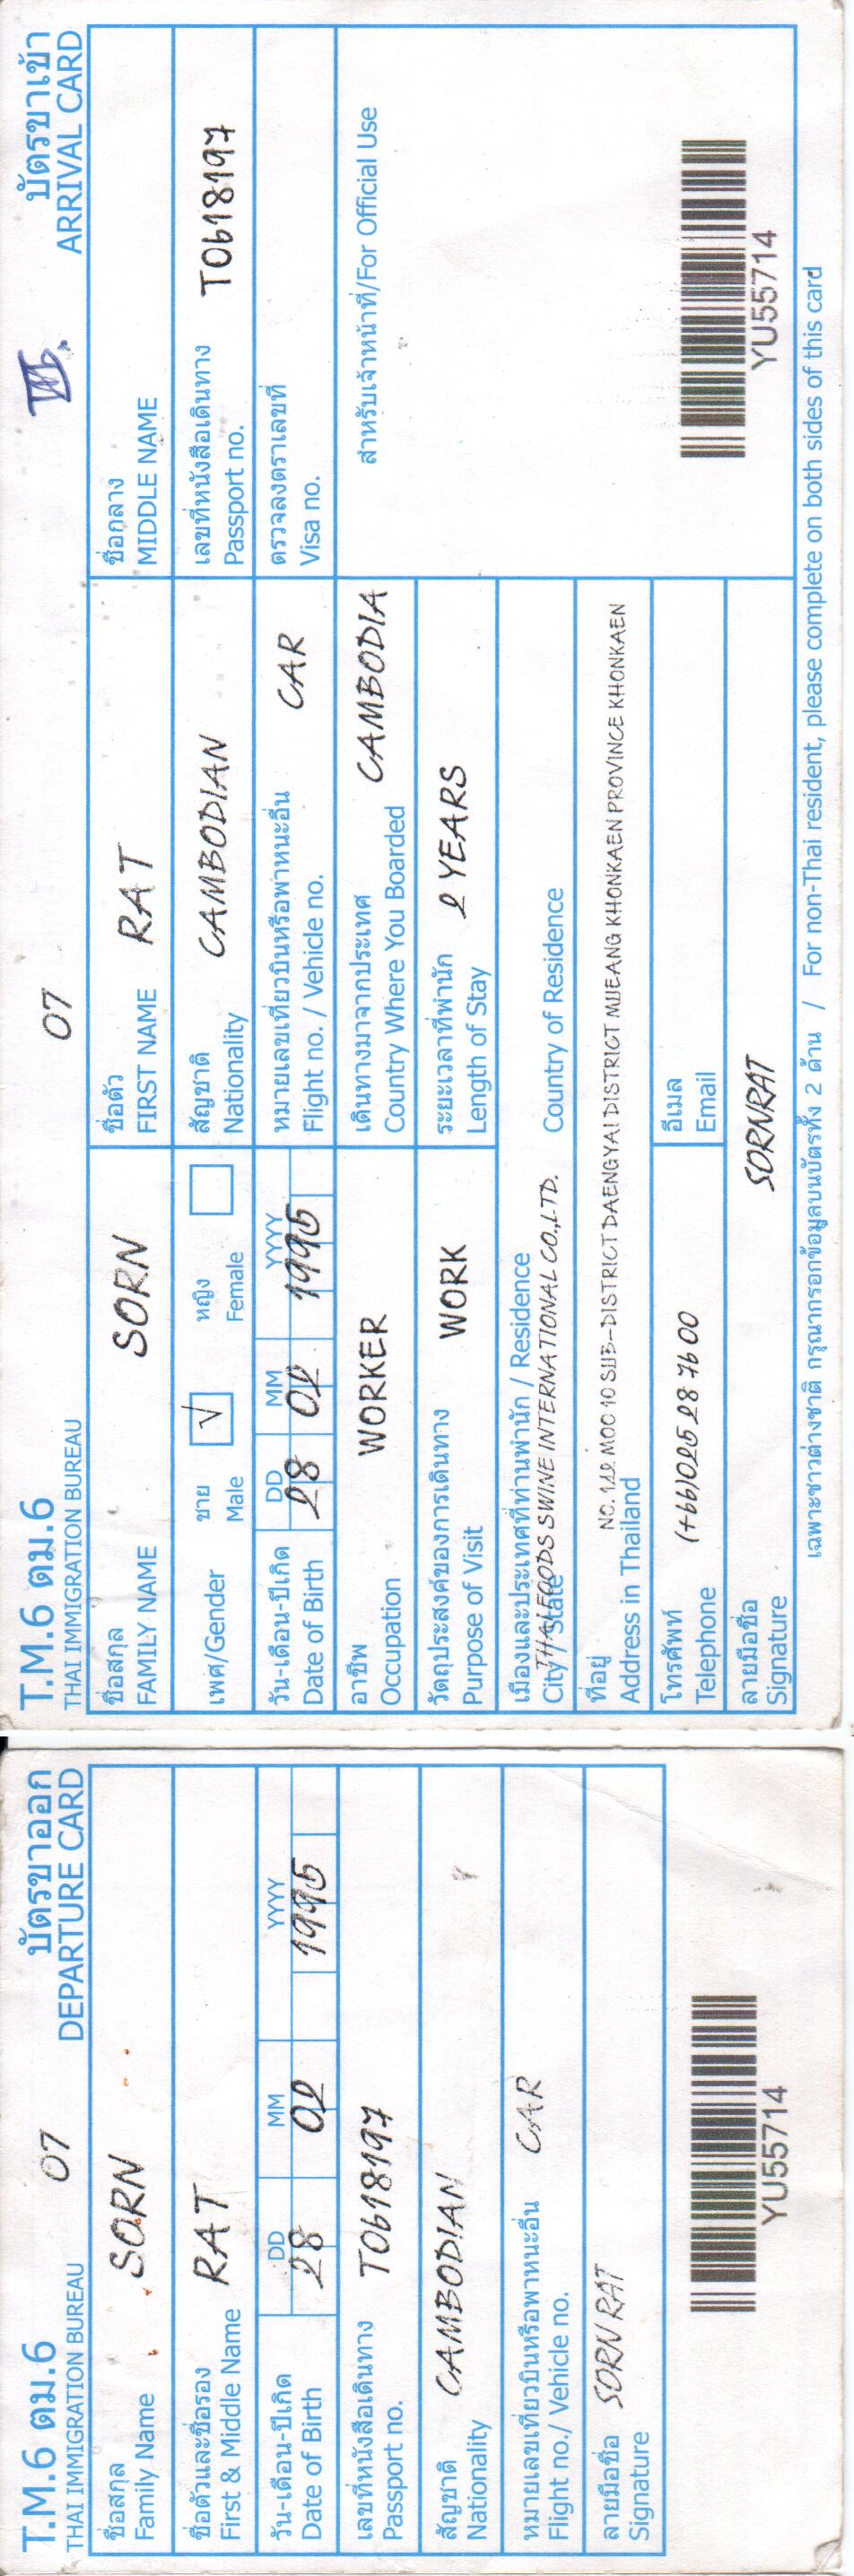 T.M.6 ตม.6
THAI IMMIGRATION BUREAU
07
บัตรขาเข้า
ARRIVAL CARD
ชื่อสกุล
FAMILY NAME
SORN
ชื่อตัว
FIRST NAME
RAT
ชื่อกลาง
MIDDLE NAME
เพศ/Gender
ชาย
Male
√
หญิง
Female
สัญชาติ
Nationality
CAMBODIAN
เลขที่หนังสือเดินทาง
Passport no.
T0618197
วัน-เดือน-ปีเกิด
Date of Birth
DD MM YYYY
28 02 1995
หมายเลขเที่ยวบินหรือพาหนะอื่น
Flight no. / Vehicle no.
CAR
ตรวจลงตราเลขที่
Visa no.
อาชีพ
Occupation
WORKER
เดินทางมาจากประเทศ
Country Where You Boarded
CAMBODIA
สำหรับเจ้าหน้าที่/For Official Use
วัตถุประสงค์ของการเดินทาง
Purpose of Visit
WORK
ระยะเวลาที่พำนัก
Length of Stay
2 YEARS
เมืองและประเทศที่ท่านพำนัก / Residence
City / State
THAI FOODS SWINE INTERNATIONAL CO.,LTD.
Country of Residence
ที่อยู่
Address in Thailand
NO. 112 MOO 10 SUB-DISTRICT DAENGYAI DISTRICT MUEANG KHONKAEN PROVINCE KHONKAEN
โทรศัพท์
Telephone
(+66)025 28 7600
อีเมล
Email
ลายมือชื่อ
Signature
SORNRAT
YU55714
เฉพาะชาวต่างชาติ กรุณากรอกข้อมูลบนบัตรทั้ง 2 ด้าน / For non-Thai resident, please complete on both sides of this card
T.M.6 ตม.6
THAI IMMIGRATION BUREAU
07
บัตรขาออก
DEPARTURE CARD
ชื่อสกุล
Family Name
SORN
ชื่อตัวและชื่อรอง
First & Middle Name
RAT
วัน-เดือน-ปีเกิด
Date of Birth
DD MM YYYY
28 02 1995
เลขที่หนังสือเดินทาง
Passport no.
T0618197
สัญชาติ
Nationality
CAMBODIAN
หมายเลขเที่ยวบินหรือพาหนะอื่น
Flight no./ Vehicle no.
CAR
ลายมือชื่อ
Signature
SORN RAT
YU55714